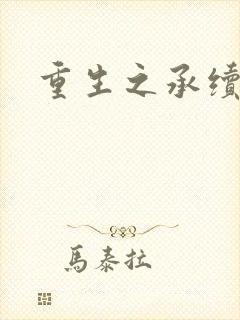 重生之承續
馬泰拉